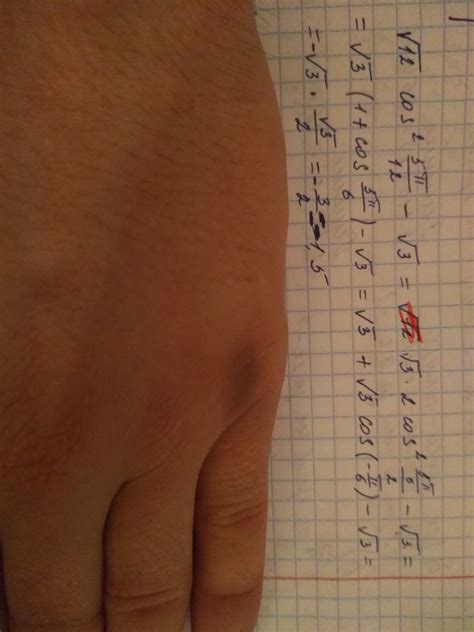 √12 cos² 5π/12 − √3 = √3 · 2 cos² (5π/6)/2 − √3 =
= √3 (1 + cos 5π/6) − √3 = √3 + √3 cos(−π/6) − √3 =
= −√3 · √3/2 = −3/2 = −1,5